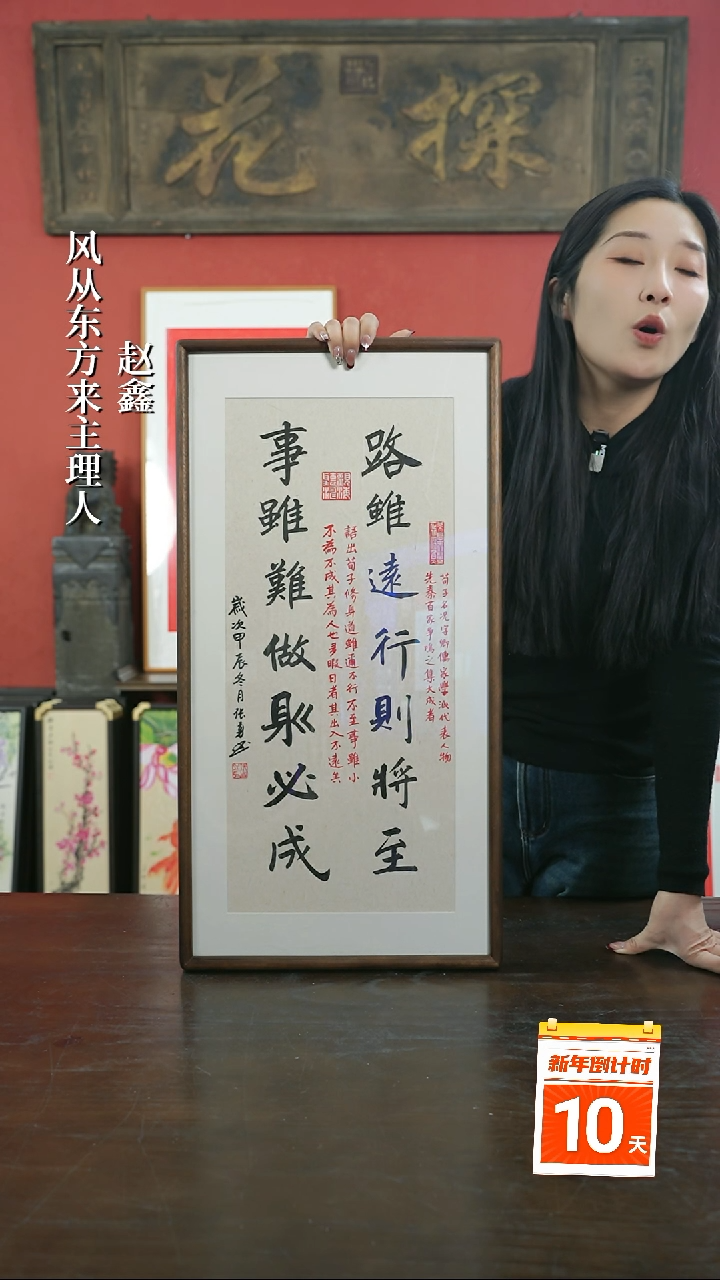 探花
赵鑫
风从东方来主理人
路雖遠行則將至
事雖難做則必成
荀子名況字卿儒家學派代表人物
先秦百家爭鳴之集大成者
語出荀子修身道雖邇不行不至事雖小
不為不成其為人也多暇日者其出入不遠矣
歲次甲辰冬月
新年倒计时
10天